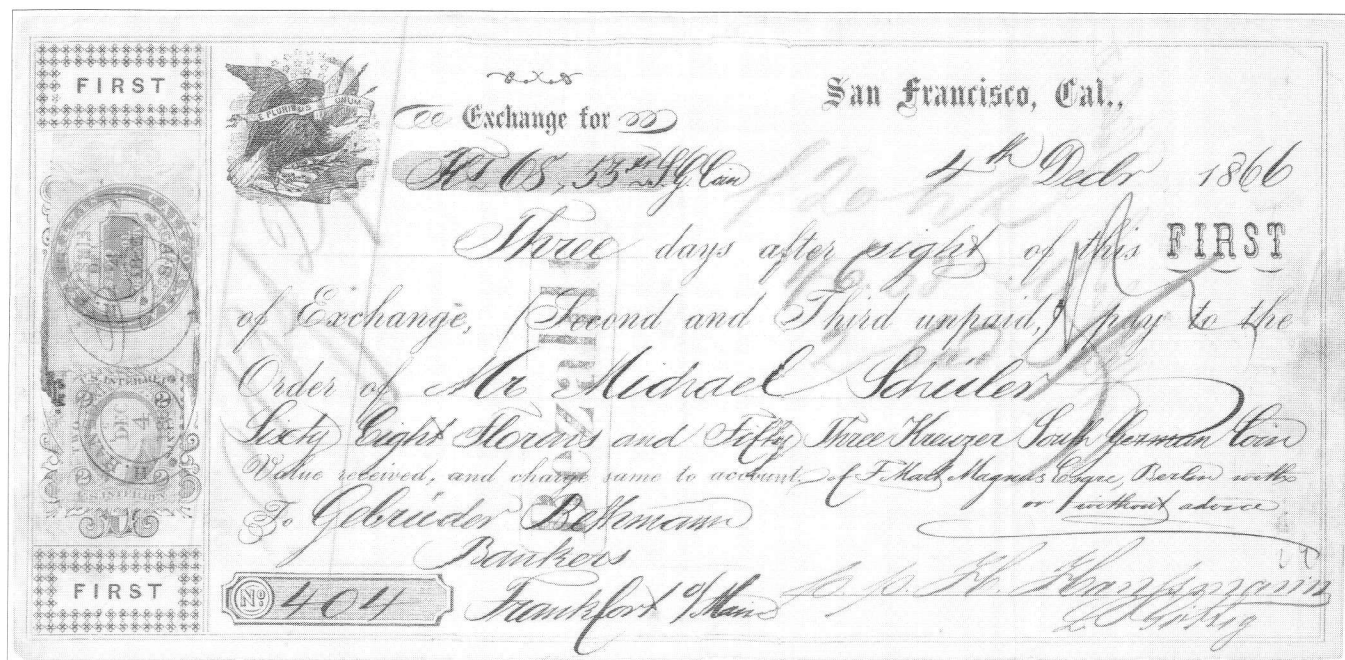 FIRST
E PLURIBUS UNUM
Exchange for
San Francisco, Cal.,
Fls 68,53 kr S.G. Coin
4th Decbr 1866
Three days after sight of this FIRST
of Exchange, (Second and Third unpaid,) pay to the
Order of Mr Michael Schuler
Sixty Eight Florins and Fifty Three Kreuzer South German Coin
Value received, and charge same to account of F. Mart Magnus Esqre, Berlin with
or without advice
To Gebrüder Bethmann
Bankers
Frankfort o/Main
No 404
p.p. H. Hausmann
FIRST
Bezahlt
DEC
4
U.S. INTER